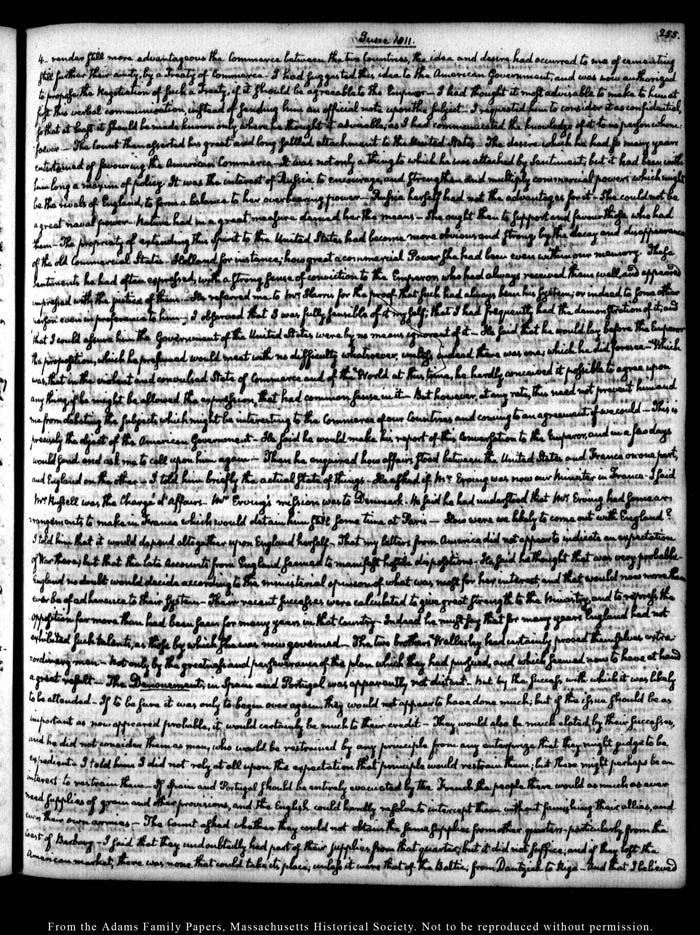 June 1811.
255.
4. render still more advantageous the Commerce between the two Countries, the idea and desire had occurred to me of cementing
still further their amity, by a Treaty of Commerce. I had suggested this idea to the American Government, and was now authorized
to propose the Negotiation of such a Treaty, if it should be agreeable to the Emperor. I had thought it most advisable to make to him at
first this verbal communication, instead of sending him an official note upon the subject. I requested him to consider it as confidential,
so that at least it should be made known only where he thought it advisable; as I had communicated the knowledge of it to no person whom-
soever. The Count then asserted his great and long settled attachment to the United States. The desire which he had for many years
entertained of favouring the American Commerce. It was not only a thing to which he was attached by Sentiment; but it had been with
him long a maxim of policy. It was the interest of Russia to encourage, and strengthen and multiply commercial powers which might
be the rivals of England, to form a balance to her overbearing power. Russia herself had not the advantages for it. She could not be
a great naval power. Nature had in a great measure denied her the means. She ought then to support and favour those who had
them. The propriety of extending this spirit to the United States had become more obvious and strong by the decay and disappearance
of the old Commercial States. Holland for instance; how great a commercial Power she had been even within our memory. These
sentiments he had often expressed, with a strong sense of conviction to the Emperor who had always received them well, and appeared
impressed with the justice of them. He referred me to Mr Harris for the proof that such had always been his System; or indeed to some other
person even in preference to him. I observed that I was fully sensible of it myself; that I had frequently had the demonstration of it; and
that I could assure him the Government of the United States were by no means ignorant of it. He said that he would lay before the Emperor
the proposition, which he presumed would meet with no difficulty whatsoever, unless indeed there was one, which he did foresee. Which
was, that in the violent and convulsed State of Commerce and of the World at this time, he hardly conceived it possible to agree upon
any thing, if he might be allowed the expression, that had common sense in it. But however, at any rate, this need not prevent him and
me from debating the subjects which might be interesting to the Commerce of our Countries and coming to an agreement if we could. This is
precisely the object of the American Government. He said he would make his report of this Conversation to the Emperor, and in a few days
would send and ask me to call upon him again. Then he enquired how affairs stood between the United States and France on one part,
and England on the other. I told him briefly the actual State of things. He asked if Mr Erving was now our Minister in France. I said
Mr Russell was the Chargé d'Affaires. Mr Erving's mission was to Denmark. He said he had understood that Mr Erving had some ar-
rangements to make in France which would detain him still some time at Paris. How were we likely to come out with England?
I told him that it would depend altogether upon England herself. That my letters from America did not appear to indicate an expectation
of War there; but that the late accounts from England seemed to manifest hostile dispositions. He said he thought that was very probable.
England no doubt would decide according to the ministerial opinion of what was most for her interest, and that would now more than
ever be of adherence to their System. Their recent successes were calculated to give great strength to the Ministry, and to repress the
opposition far more than had been seen for many years in that Country. Indeed he must say that for many years England had not
exhibited such talents, as those by which she was now governed. The two brothers Wellesley had certainly proved themselves extra-
ordinary men. Not only by the greatness and perseverance of the plan which they had pursued, and which seemed now to have at hand
a great result. The Denouement, in Spain and Portugal was apparently not distant. But by the success with which it was likely
to be attended. If to be sure it was only to begin over again they would not appear to have done much; but if the issue should be as
important as now appeared probable, it would certainly be much to their credit. They would also be much elated by their successes,
and he did not consider them as men, who would be restrained by any principle from any enterprize that they might judge to be
expedient. I told him I did not rely at all upon the expectation that principle would restrain them; but there might perhaps be an
interest to restrain them. If Spain and Portugal should be entirely evacuated by the French the people there would as much as ever
need supplies of grain and other provisions, and the English could hardly resolve to intercept them without famishing their allies, and
even their own armies. The Count asked whether they could not obtain the same supplies from other quarters, particularly from the
Coast of Barbary. I said that they undoubtedly had part of their supplies from that quarter; but it did not suffice; and if they lost the
American market, there was none that could take its place, unless it were that of the Baltic, from Dantzick to Riga. And that I believed
From the Adams Family Papers, Massachusetts Historical Society. Not to be reproduced without permission.